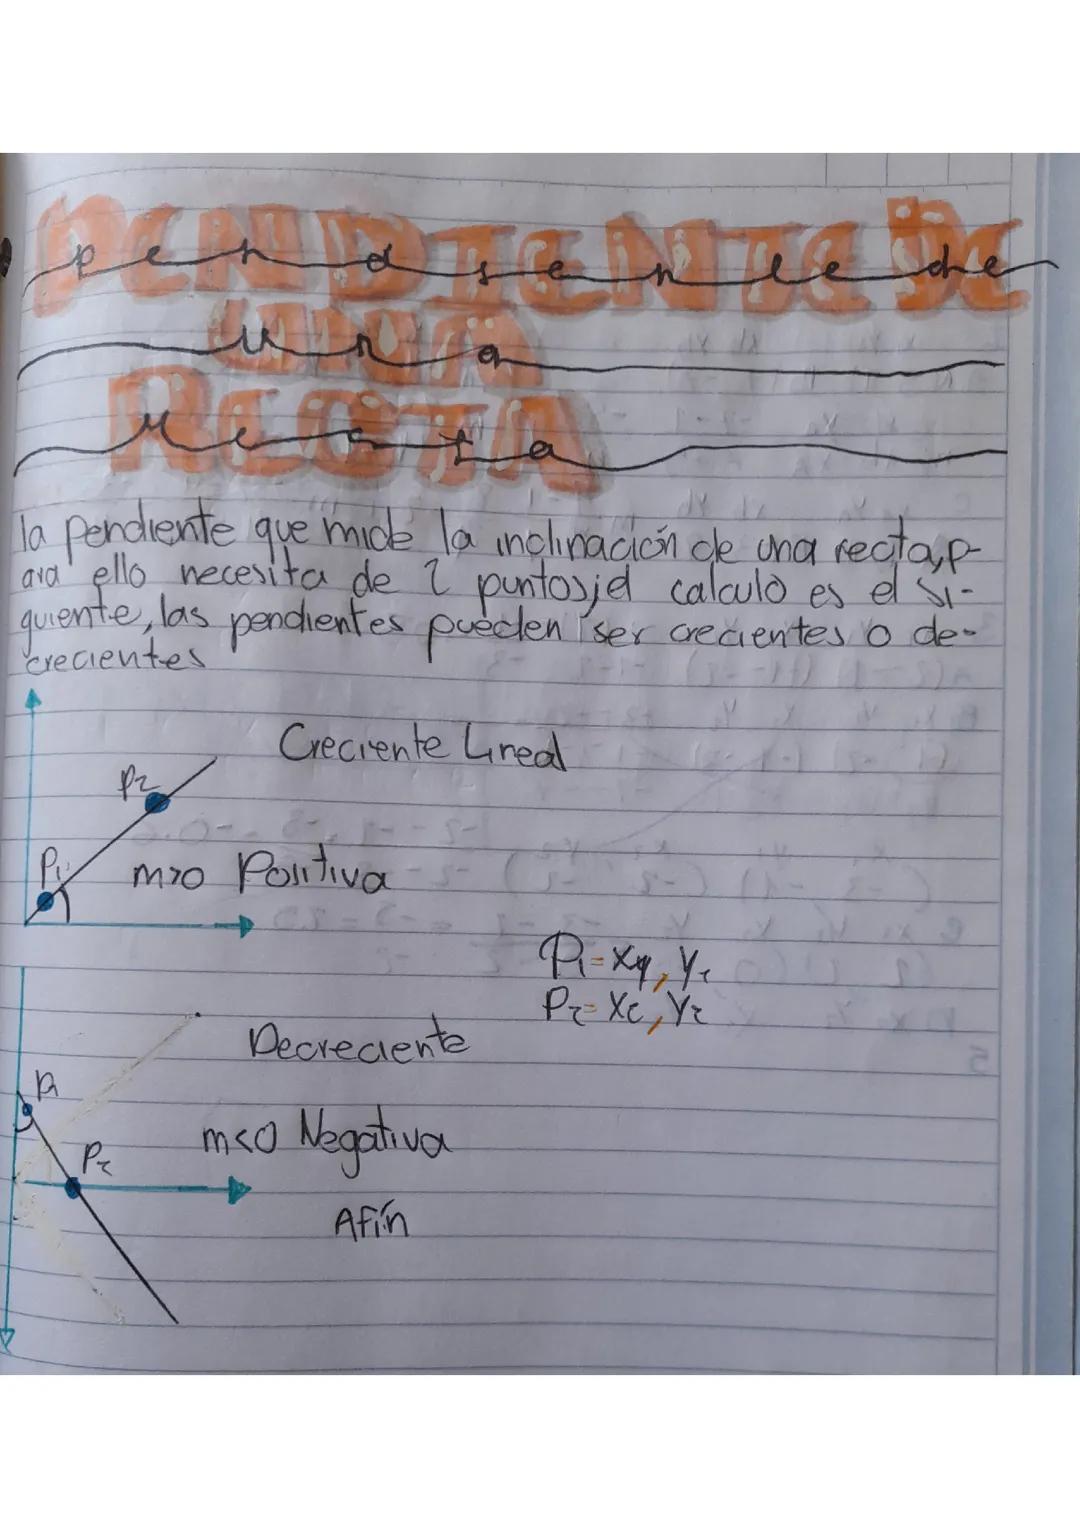 PENDIENTE DE
pendiente de
UNA
una
RECTA
recta
la pendiente que mide la inclinación de una recta, p-
ara ello necesita de 2 puntos; el calculo es el si-
guiente, las pendientes pueden ser crecientes o de-
crecientes
Creciente Lineal
P2
P1
m>0 Positiva
P1=X1, Y1
P2=X2, Y2
Decreciente
P1
m<0 Negativa
P2
Afín